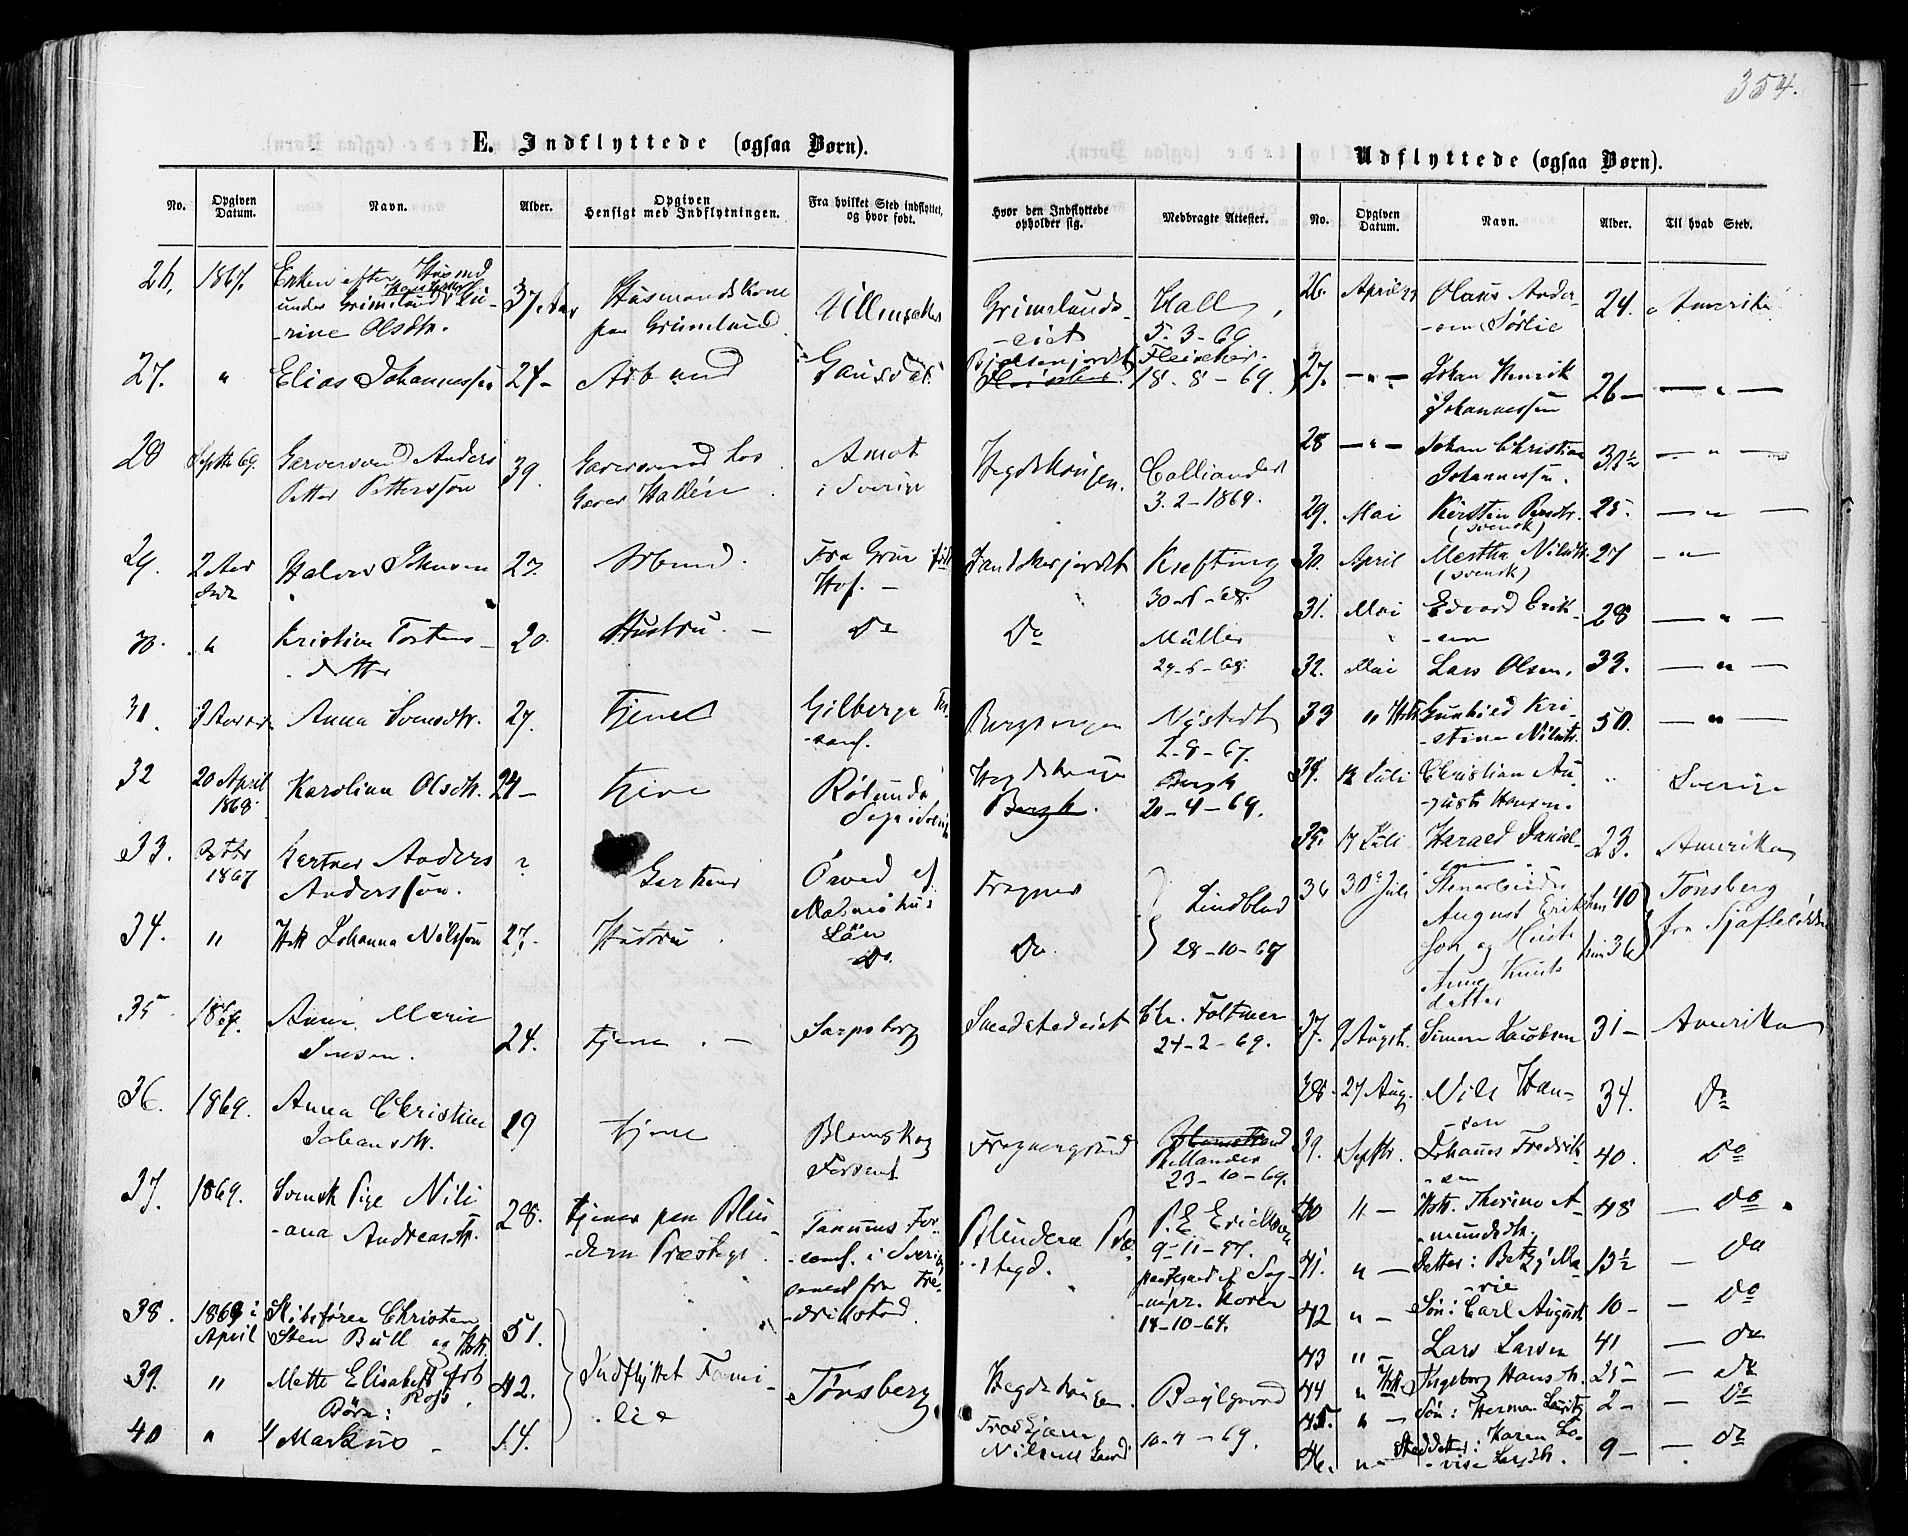 354.
E. Indflyttede (ogsaa Børn).
No. Opgiven Datum. Navn. Alder. Opgiven Hensigt med Indflytningen. Fra hvilket Sted indflyttet, og hvor født. Hvor den Indflyttede opholder sig. Medbragte Attester.
26, 1867. Enken efter Husmd
under Grimelund
-rine Olsdtr. 37 Aar Husmandskone
paa Grimelund Ullensaker Grimelunds-
-eiet Hall
5-3-69
27. " Elias Johannessen 24- Arbmd Gausdal 18-8-69
28 Septbr 69. Garversvend Anders
Petter Pettersson 39. Garversvend hos
Garver Hallén Åmot
i Sverige Hegdehaugen. Calliander
3-2-1869.
29. 2 Aar
siden Halvor Johnsen 27. Arbmd. Fra Grue født
Hof. - Krefting
30. " Kristine Torstens-
-datter 20. Hustru. - Do Do Müller
31 Anna Svensdtr. 27. Tjene Gilberga
-saml. Nystedt
2-8-67.
32 20 April
1868. Karolina Olsdtr. 24- Tjene Sogn i Sverige Hegdehaugen
Bergh. Bergh
20-4-69.
33. 1867 Gartner Anders
Andersson. ? Gartner Öved af
Malmöhus
Län Frogner Lindblad
34. " Hst Johanna Nilsson 27. Hustru. Do. Do. 28-10-67
35 1867. Anne Marie
Jensen. 24. Tjene. - Sarpsborg Smedstedeiet Chr. Foltmer
24-2-69.
36. 1869. Anna Christine
Johansdtr. 29 Tjene Blomskog
Forsaml. Frognergrund Blomstrand
23-10-69.
37. 1869. Svensk Pige Nili-
-ana Andreasdtr. 28. Tjener paa Blin-
-dern Præstegd. Tanums For-
-saml. i Sverige
Fre-
-drikstad. Blindern Præ-
-stegd. P. E. Ericsson
9-11-67.
Sog-
-nepr. Koren
18-10-69.
38. 1869 i
April Skibsfører Christen
Sten Bull og Hst. 51. Indflyttet Fami-
-lie Tønsberg Hegdehaugen Bassøe
39. " Mette Elisabeth født 42.
Børn:
40 " 1/ Markus - 14. Nielsens Gaard 10-4-69.
Udflyttede (ogsaa Børn).
No. Opgiven Datum. Navn. Alder. Til hvad Sted.
26. April 29 Olaus Ander-
-sen Sørlie 24. Amerika
27. - " - Johan Henrik
Johannessen 26- - " -
28 - " - Johan Christian
Johannessen. 32½ - " -
29. Mai Kersten
(svensk) 25. - " -
30. April Martha Nilsdtr.
(svensk) 27 - "
31. Mai Edvard Erik-
-sen 28 - " -
32. Mai Lars Olsen. 33. - " -
33 " Hst. Gunhild Kri-
-stine Nilsdtr. 50. - " -
34. 12 Juli Christian Au-
-gust Hansen. " Sverige
35. 17 Juli Harald Daniel-
-sen. 23. Amerika
36 30e Juli Stenarbeider
August Erik-
sen og Hustru
Anne Knuts-
datter han 40
hun 36 Tønsberg
fra
37. 9 Augst. Simen Jacobsen 31- Amerika
38. 27 Aug. Nils Han-
-sen 34. Do
39. Septbr. Johannes Fredrik-
-sen 40. Do
40 " - Hst. Thorine A-
-mundsdtr. 48 - Do
41. " - Datter: Betzy Ma-
-rie 13½ - Do
42 " - Søn: Carl August 10- - Do
43 " - Lars Larsen 41 - Do
44 " Hst. Ingeborg Hansdtr. 25- - Do
45. " - Søn: Herman Lauritz 2- - Do
46. " - Steddatter: Karen Lo-
-vise Larsdtr. 9- - Do